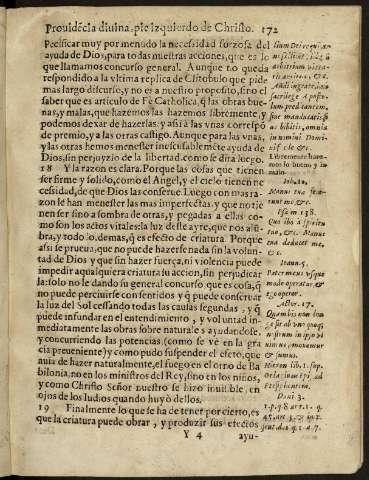 Prouidẽcia diuina, pie izquierdo de Christo. 172
Pecificar muy por menudo la necessidad forzosa del
ayuda de Dios, para todas nuestras acciones, que es lo
que llamamos concurso general. Aunque no queda
respondido a la vltima replica de Cistobulo que pide
mas largo discurso, y no es a nuestro proposito, sino el
saber que es articulo de Fè Catholica, q̃ las obras bue-
nas, y malas, que hazemos las hazemos libremente, y
podemos dexar de hazerlas: y assi a las vnas corresp̃õ
de premio, y a las otras castigo. Aunque para las vnas,
y las otras hemos menester ineuitablemẽte ayuda de
Dios, sin perjuyzio de la libertad. como se dira luego.
18 Y la razon es clara. Porque las cosas que tienen
ser firme y solido, como el Angel, y el cielo tienen ne
cessidad, de que Dios las conserue. Luego con mas ra-
zon le hàn menester las mas imperfectas, y que no tie
nen ser sino a sombra de otras, y pegadas a ellas co-
mo son los actos vitales: la luz deste ayre, que nos alũ-
bra, y todo lo, demas, q̃ es efecto de criatura. Porque
assi se prueua, que no puede hazerse nada sin la volun-
tad de Dios y que sin hazer fuerça, ni violencia puede
impedir aqualquiera criatura su accion, sin perjudicar
la: solo no le dando su general concurso, que es cosa, q̃
no puede perciuirse con sentidos y q̃ puede conseruar
la luz del Sol cessando todas las causas segundas, y q̃
puede infundar en el entendimiento, y voluntad in-
mediatamente las obras sobre naturales ayudandose,
y concurriendo las potencias (como se vè en la gra
cia preueniente) y como pudo suspender el efeto, que
auia de hazer naturalmente, el fuego en el orno de Ba
bilonia, no en los ministros del Rey, sino en los niños,
y como Christo Señor nuestro se hizo inuisible, en
ojos de los ludios quando huyò dellos.
19 Finalmente lo que se ha de tener por cierto, es
que la criatura puede obrar, y produzir sus efectos
Y 4 ayu-
Libremente haze-
mos lo bueno y lo
malo.
Iob. 10.
Manus tuæ fece-
runt me &c.
Psalm 138.
Quo ibo à spiritu
tuo, &c. Manus
tua deducet me.
&c.
Ioann. 5.
Pater meus vsque
modo operatur, &
ego operor.
Actor. 17.